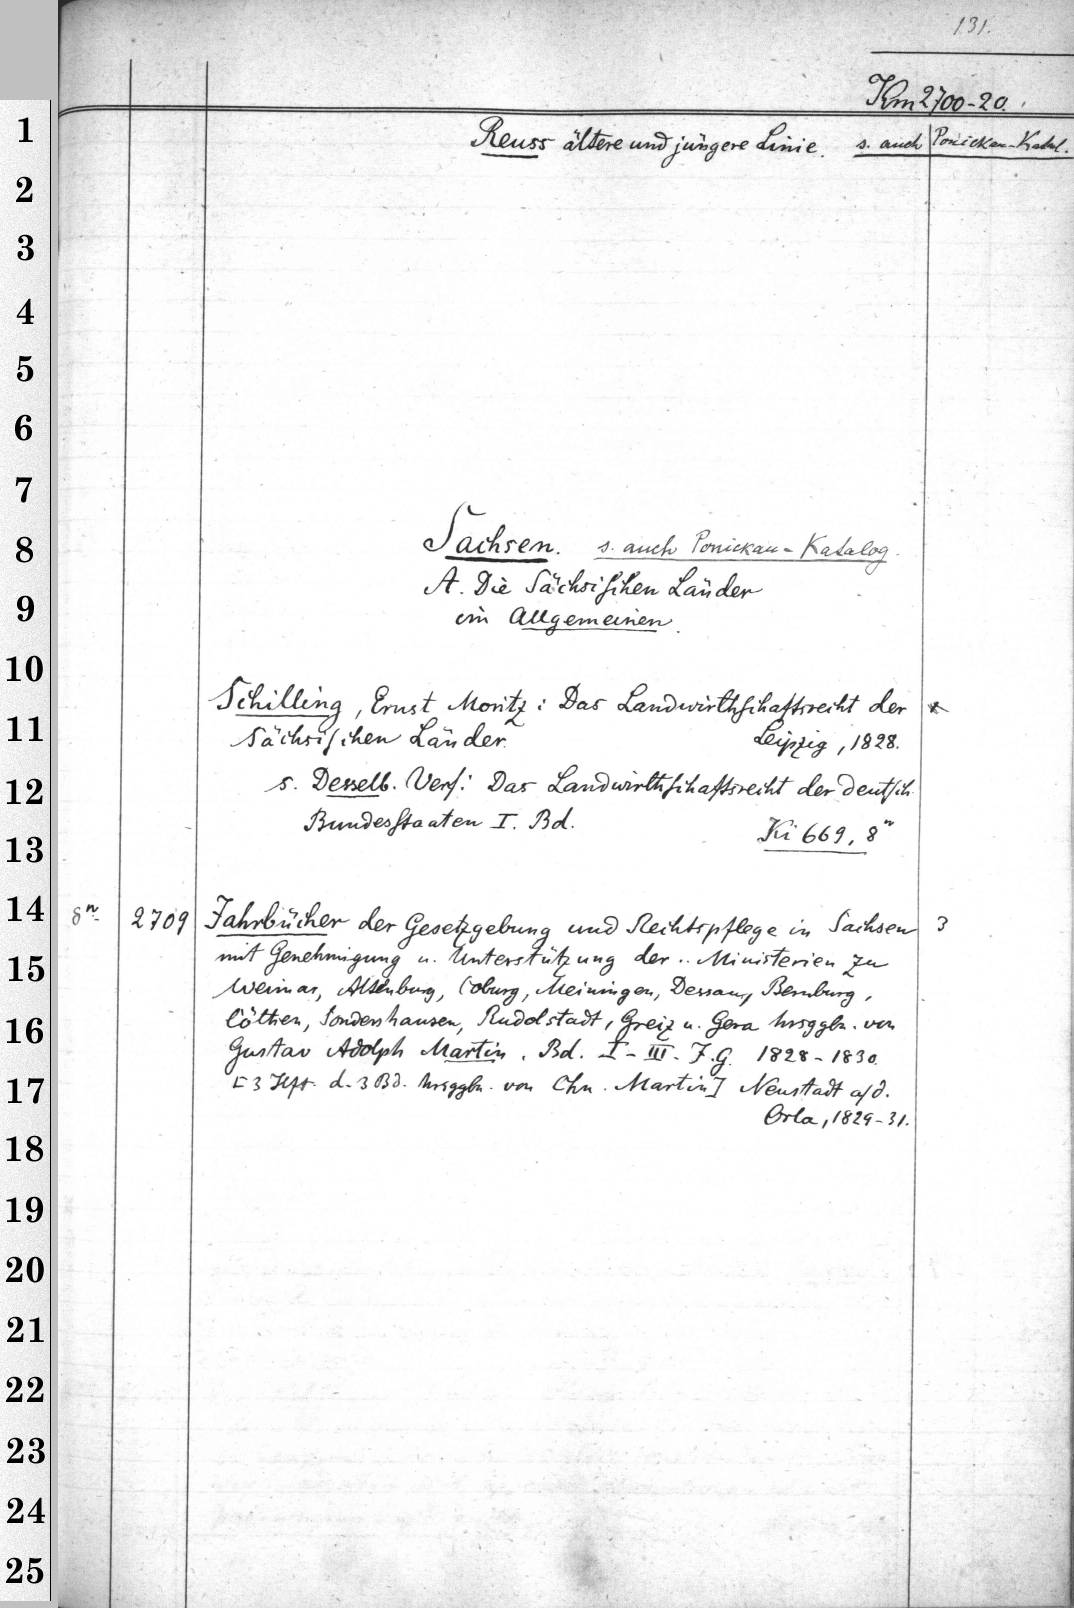 131.
Km 2700-20.
1
Reuss ältere und jüngere Linie. s. auch Ponickau-Katal.
2
3
4
5
6
7
8
Sachsen. s. auch Ponickau-Katalog.
A. Die Sächsischen Länder
9
im Allgemeinen.
10
Schilling, Ernst Moritz: Das Landwirthschaftsrecht der *
11
Sächsischen Länder. Leipzig, 1828.
12
s. Desselb. Verf: Das Landwirthschaftsrecht der deutsch.
Bundesstaaten I. Bd. Ki 669, 8n
13
14
8n. 2709 Jahrbücher der Gesetzgebung und Rechtspflege in Sachsen 3
15
mit Genehmigung u. Unterstützung der .. Ministerien zu
Weimar, Altenburg, Coburg, Meiningen, Dessau, Bernburg,
16
Cöthen, Sondershausen, Rudolstadt, Greiz u. Gera hrsggbn. von
Gustav Adolph Martin. Bd. I-III. J.G. 1828-1830.
17
[3 Hft. d. 3 Bd. hrsggbn. von Chn. Martin] Neustadt a/d.
Orla, 1829-31.
18
19
20
21
22
23
24
25